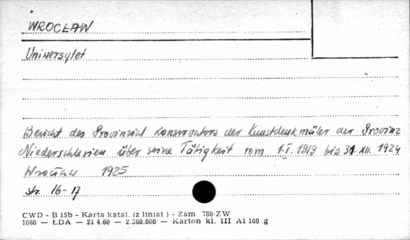 WROCŁAW
Uniwersytet
Bericht des Provinzial Konservators der Kunstdenkmäler der Provinz
Niederschlesien über seine Tätigkeit vom 1.I.1919 bis 31.XII.1924
Wrocław 1925
str. 16-17
CWD - B 15b - Karta katal. (z liniat.) - Zam 788-ZW
1060 — ŁDA — 21.4.60 — 2.260.000 — Karton kl. III A1 160 g